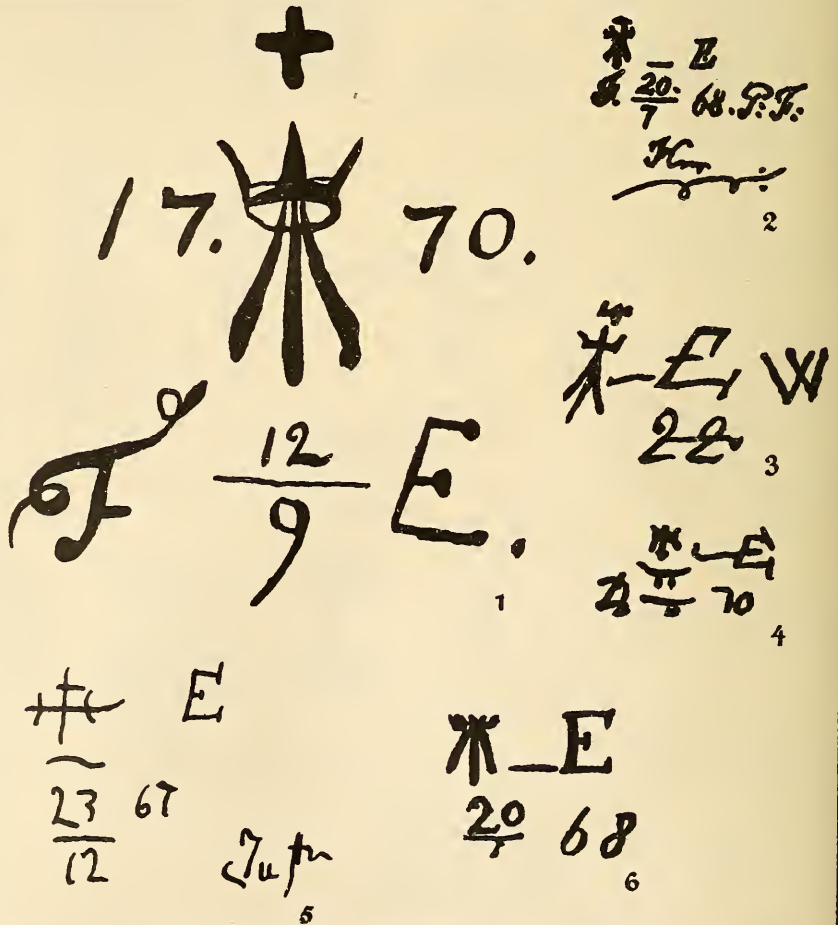 17. 70.
F 12/9 E.
1
E
20./7 68. P. F.
2
E W
22
3
E
70
4
E
23/12 67
5
E
20 68
6